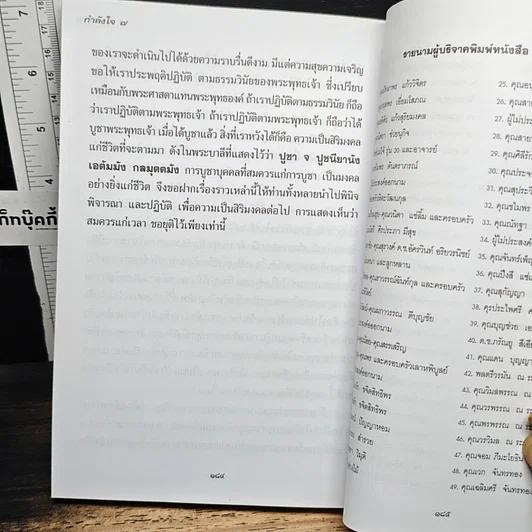 กำลังใจ ๗
ของเราจะดำเนินไปได้ด้วยความราบรื่นดีงาม มีแต่ความสุขความเจริญ
ขอให้เราประพฤติปฏิบัติ ตามธรรมวินัยของพระพุทธเจ้า ซึ่งเปรียบ
เหมือนกับพระศาสดาแทนพระพุทธองค์ ถ้าเราปฏิบัติตามธรรมวินัย ก็ถือ
ว่าเราปฏิบัติตามพระพุทธเจ้า ถ้าเราปฏิบัติตามพระพุทธเจ้า ก็ถือว่าได้
บูชาพระพุทธเจ้า เมื่อได้บูชาแล้ว สิ่งที่เราหวังได้ก็คือ ความเป็นสิริมงคล
แก่ชีวิตที่จะตามมา ดังในพระบาลีที่แสดงไว้ว่า ปูชา จ ปูชนียานัง
เอตัมมัง กลมุตตมัง การบูชาบุคคลที่สมควรแก่การบูชา เป็นมงคล
อย่างยิ่งแก่ชีวิต จึงขอฝากเรื่องราวเหล่านี้ให้ท่านทั้งหลายนำไปพินิจ
พิจารณา และปฏิบัติ เพื่อความเป็นสิริมงคลต่อไป การแสดงเห็นว่า
สมควรแก่เวลา ขอยุติไว้เพียงเท่านี้
๑๘๔
รายนามผู้บริจาคพิมพ์หนังสือ
แก้ววิจิตร
เอี่ยมโสภณ
แก้วสุริยมงคล
ช่วยนุกิจ
รุ่น ๓๐ และอาจารย์
ตันตราภรณ์
ประสงค์ออกนาม
แซ่ลิ้ม และครอบครัว
ศิตประภา มีสุข
ด.ช.อัครวินท์ อริยวรนิชย์
และลูกหลาน
และครอบครัว
ดีบุญชัย
ประสงค์ออกนาม
และครอบครัวเลาหพิบูลย์
ประสงค์ออกนาม
รจิตสิทธิพร
รจิตสิทธิพร
ปัญญาหอม
สำรวย
25. คุณอน
26. คุณสาย
27. ผู้ไม่ประ
28. คุณสาย
29. คุณศิลี
30. คุณประจ
31. คุณสุประวี
32. คุณขไมพร
33. คุณณัทฐา
34. ผู้ไม่ประสงค์
35. คุณจันทร์เพ็ญ
36. คุณปิงสี แซ่
37. คุณสุกัญญา
38. คุรประไพศรี ค
39. คุณบุญช่วย เอ
40. ด.ช.ภรัณยู สีเอี
41. คุณแดน บุญญา
42. พลตรีวรมัน ณ ระ
43. คุณวิมลพรรณ ณ
44. คุณวรพรรณ ณ ระ
45. คุณพรพรรณ ณ ระ
46. คุณวรวิมล ณ ระ
47. คุณจอม ภีมะโยธิน
48. คุณเวก จันทรทอง
49. คุณเฉลิมศรี จันทรทอง
๑๘๕
ก็กบุ๊คกี้
7
6
5
4
3